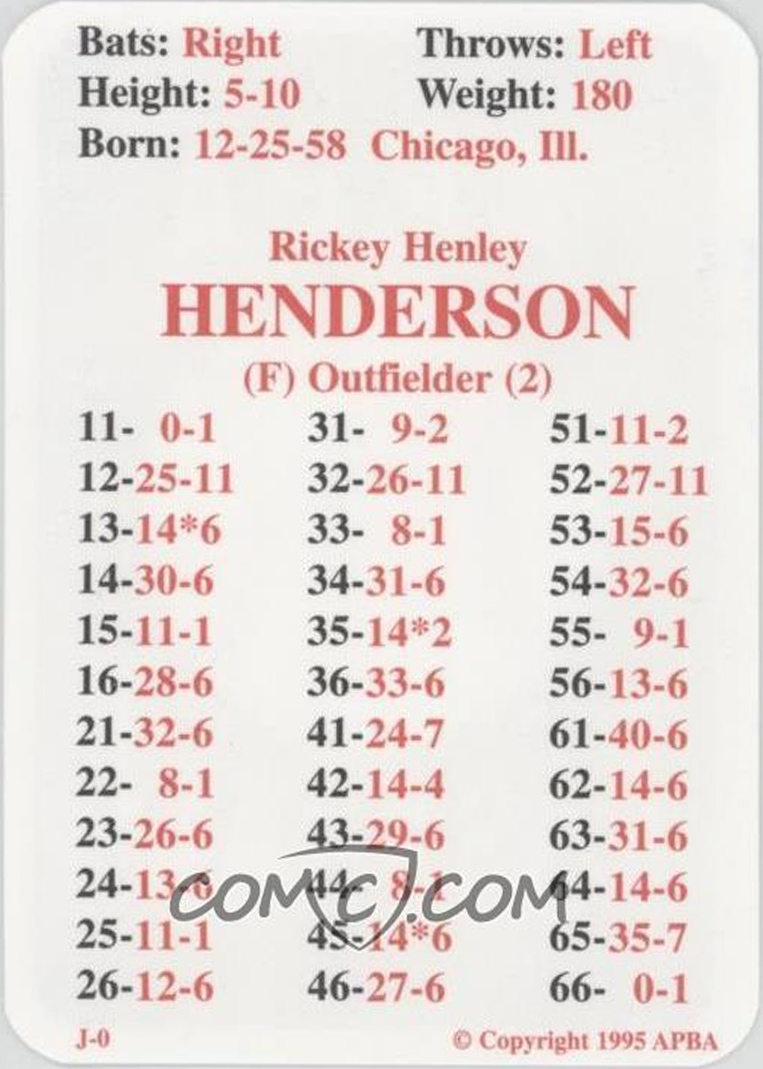 Bats: Right Throws: Left
Height: 5-10 Weight: 180
Born: 12-25-58 Chicago, Ill.
Rickey Henley
HENDERSON
(F) Outfielder (2)
11- 0-1 31- 9-2 51-11-2
12-25-11 32-26-11 52-27-11
13-14*6 33- 8-1 53-15-6
14-30-6 34-31-6 54-32-6
15-11-1 35-14*2 55- 9-1
16-28-6 36-33-6 56-13-6
21-32-6 41-24-7 61-40-6
22- 8-1 42-14-4 62-14-6
23-26-6 43-29-6 63-31-6
24-13-6 44- 8-1 64-14-6
COMC.COM
25-11-1 45-14*6 65-35-7
26-12-6 46-27-6 66- 0-1
J-0 © Copyright 1995 APBA